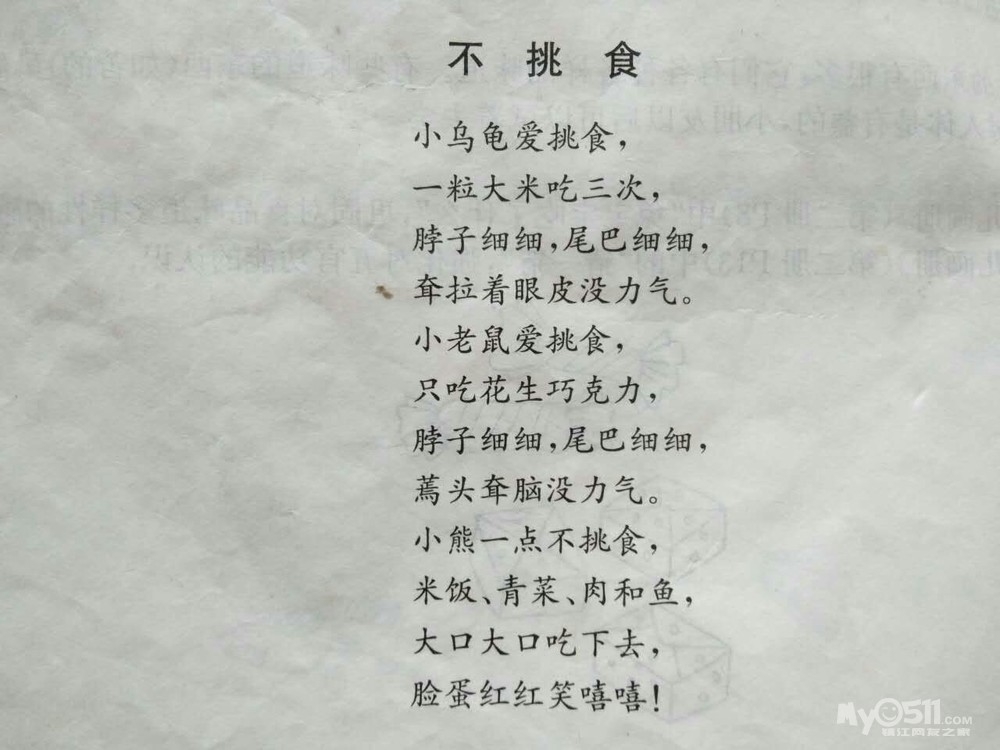 不挑食
小乌龟爱挑食，
一粒大米吃三次，
脖子细细，尾巴细细，
耷拉着眼皮没力气。
小老鼠爱挑食，
只吃花生巧克力，
脖子细细，尾巴细细，
蔫头耷脑没力气。
小熊一点不挑食，
米饭、青菜、肉和鱼，
大口大口吃下去，
脸蛋红红笑嘻嘻！
My0511.com
镇江网友之家